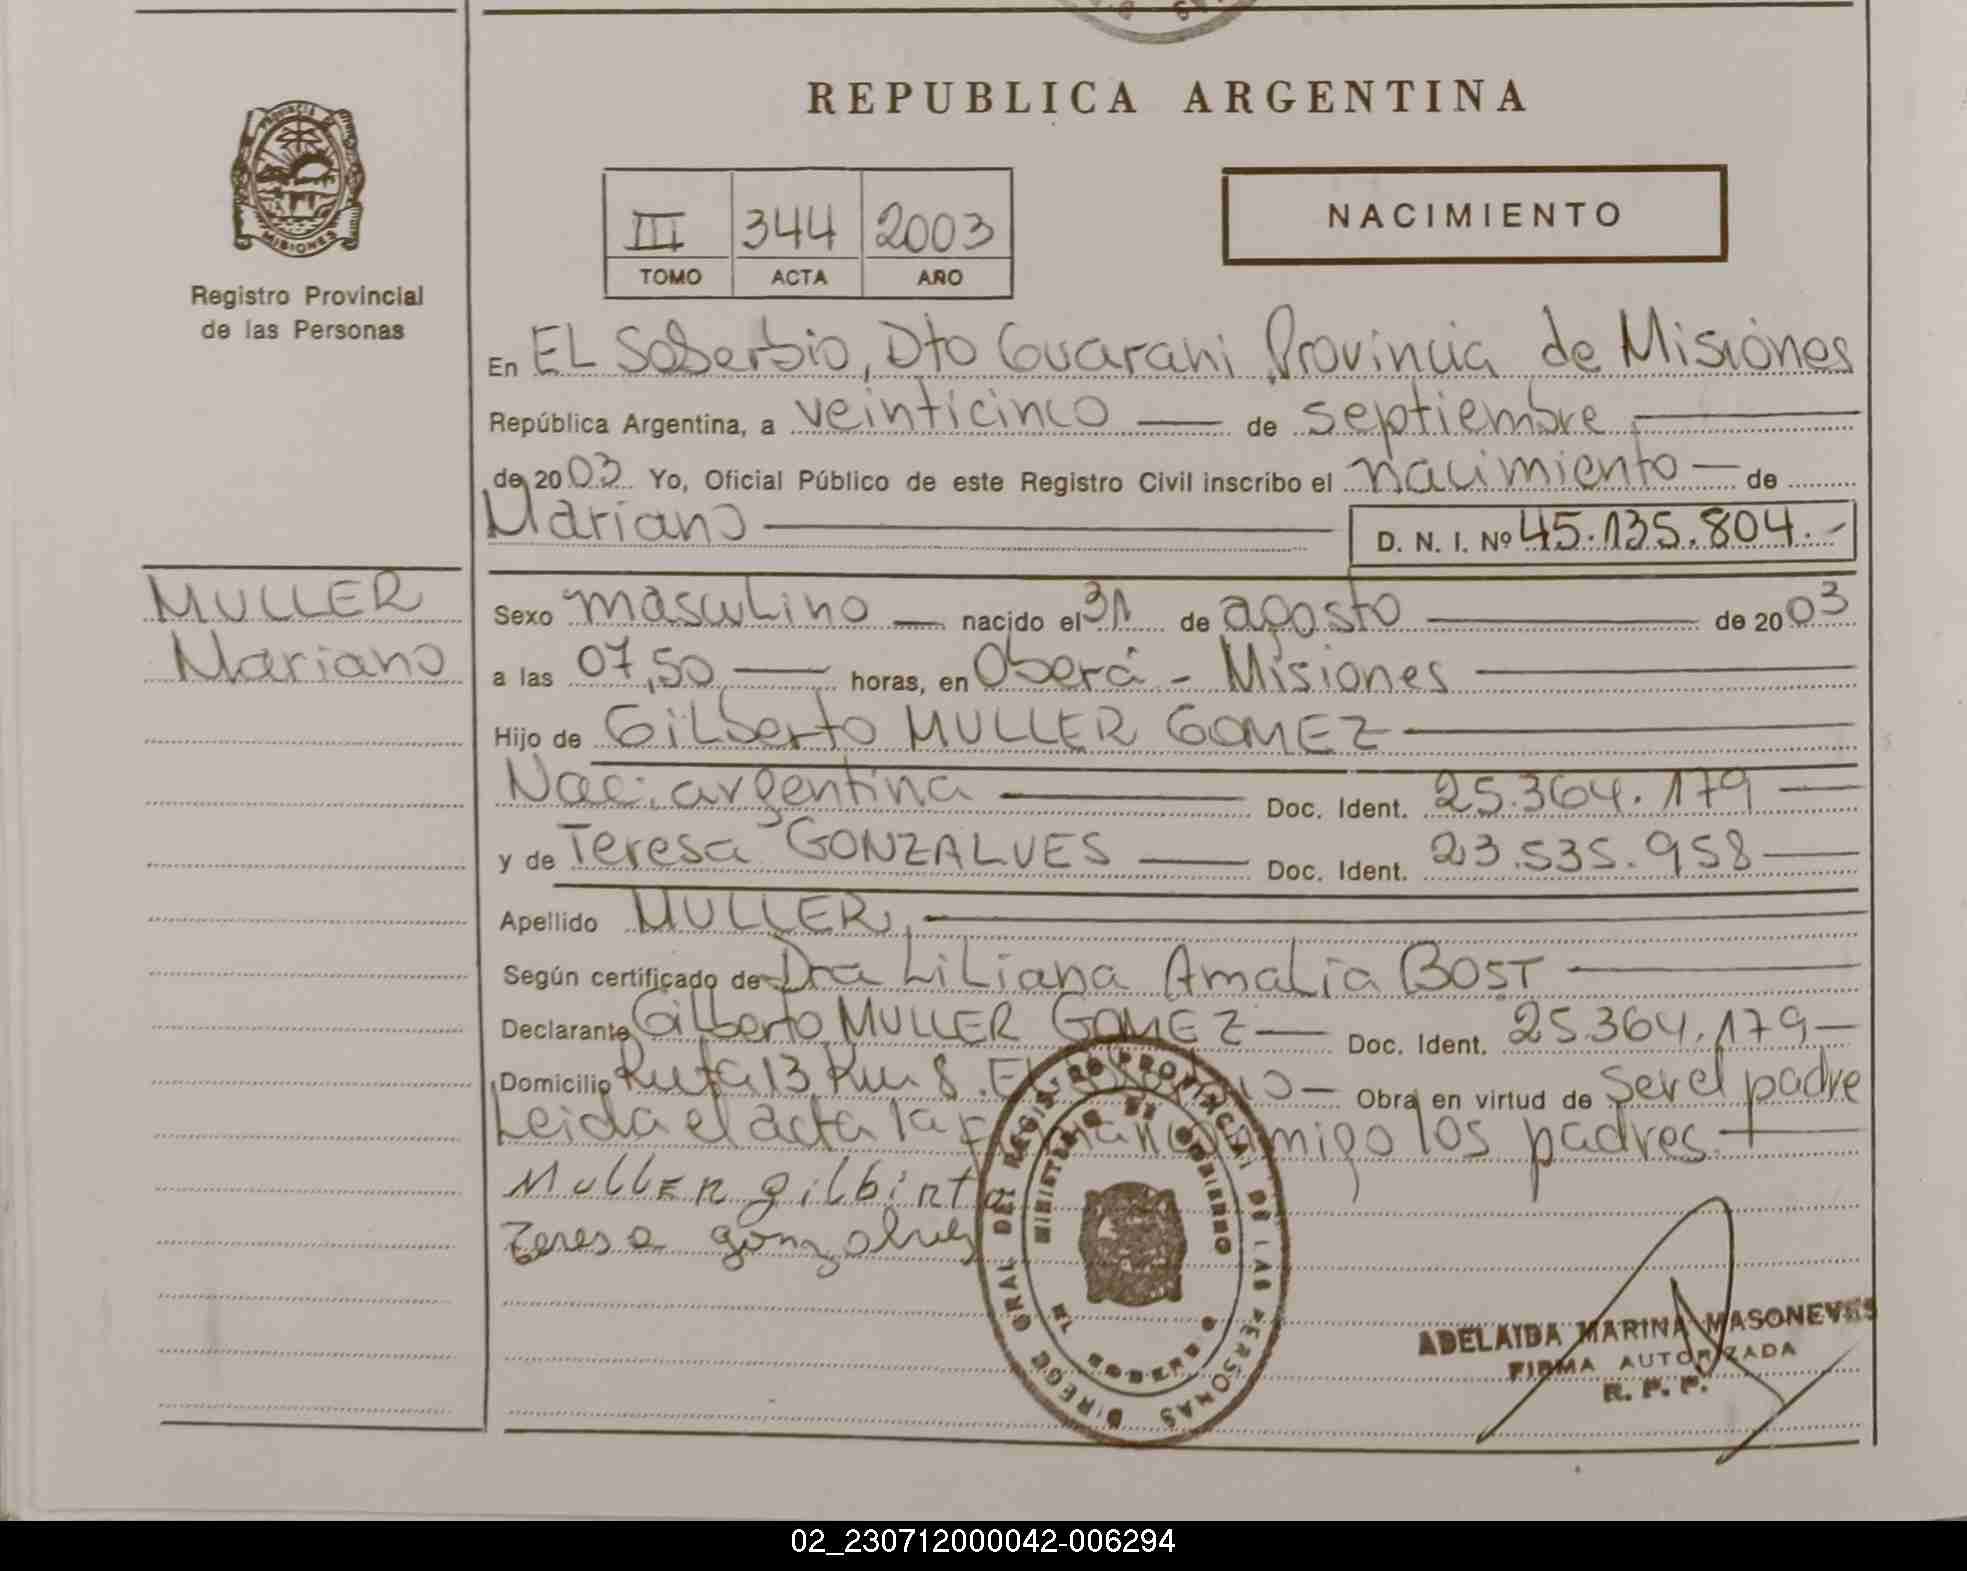 REPUBLICA ARGENTINA
PROVINCIA DE
MISIONES
Registro Provincial
de las Personas
III 344 2003
TOMO ACTA AÑO
NACIMIENTO
En EL Soberbio, Dto Guarani Provincia de Misiones
República Argentina, a veinticinco — de septiembre —
de 2003 Yo, Oficial Público de este Registro Civil inscribo el nacimiento — de
Mariano — D. N. I. Nº 45.135.804.-
MULLER
Mariano
Sexo masculino — nacido el 31 de agosto — de 2003
a las 07,50 — horas, en Oberá - Misiones —
Hijo de Gilberto MULLER GOMEZ —
Nac: argentina — Doc. Ident. 25.364.179 —
y de Teresa GONZALVES — Doc. Ident. 23.535.958 —
Apellido MULLER, —
Según certificado de Dra Liliana Amalia BOST —
Declarante Gilberto MULLER GOMEZ — Doc. Ident. 25.364.179 —
Domicilio Ruta 13 Km 8. — Obra en virtud de ser el padre
Leida el acta la los padres. —
Muller gilbirto
Teresa gonzalves
DIRECC GRAL DEL REGISTRO PROVINCIAL DE LAS PERSONAS
MINISTERIO DE GOBIERNO
ADELAIDA MARINA MASONEVES
FIRMA AUTORIZADA
R. P. P.
02_230712000042-006294